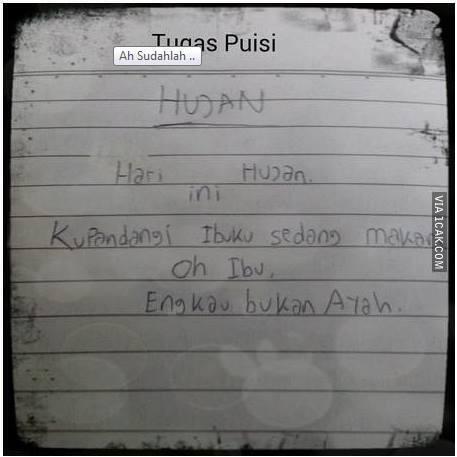 Tugas Puisi
Ah Sudahlah ..
HUJAN
Hari ini Hujan.
Kupandangi Ibuku sedang makan
Oh Ibu,
Engkau bukan Ayah.
VIA 1CAK.COM